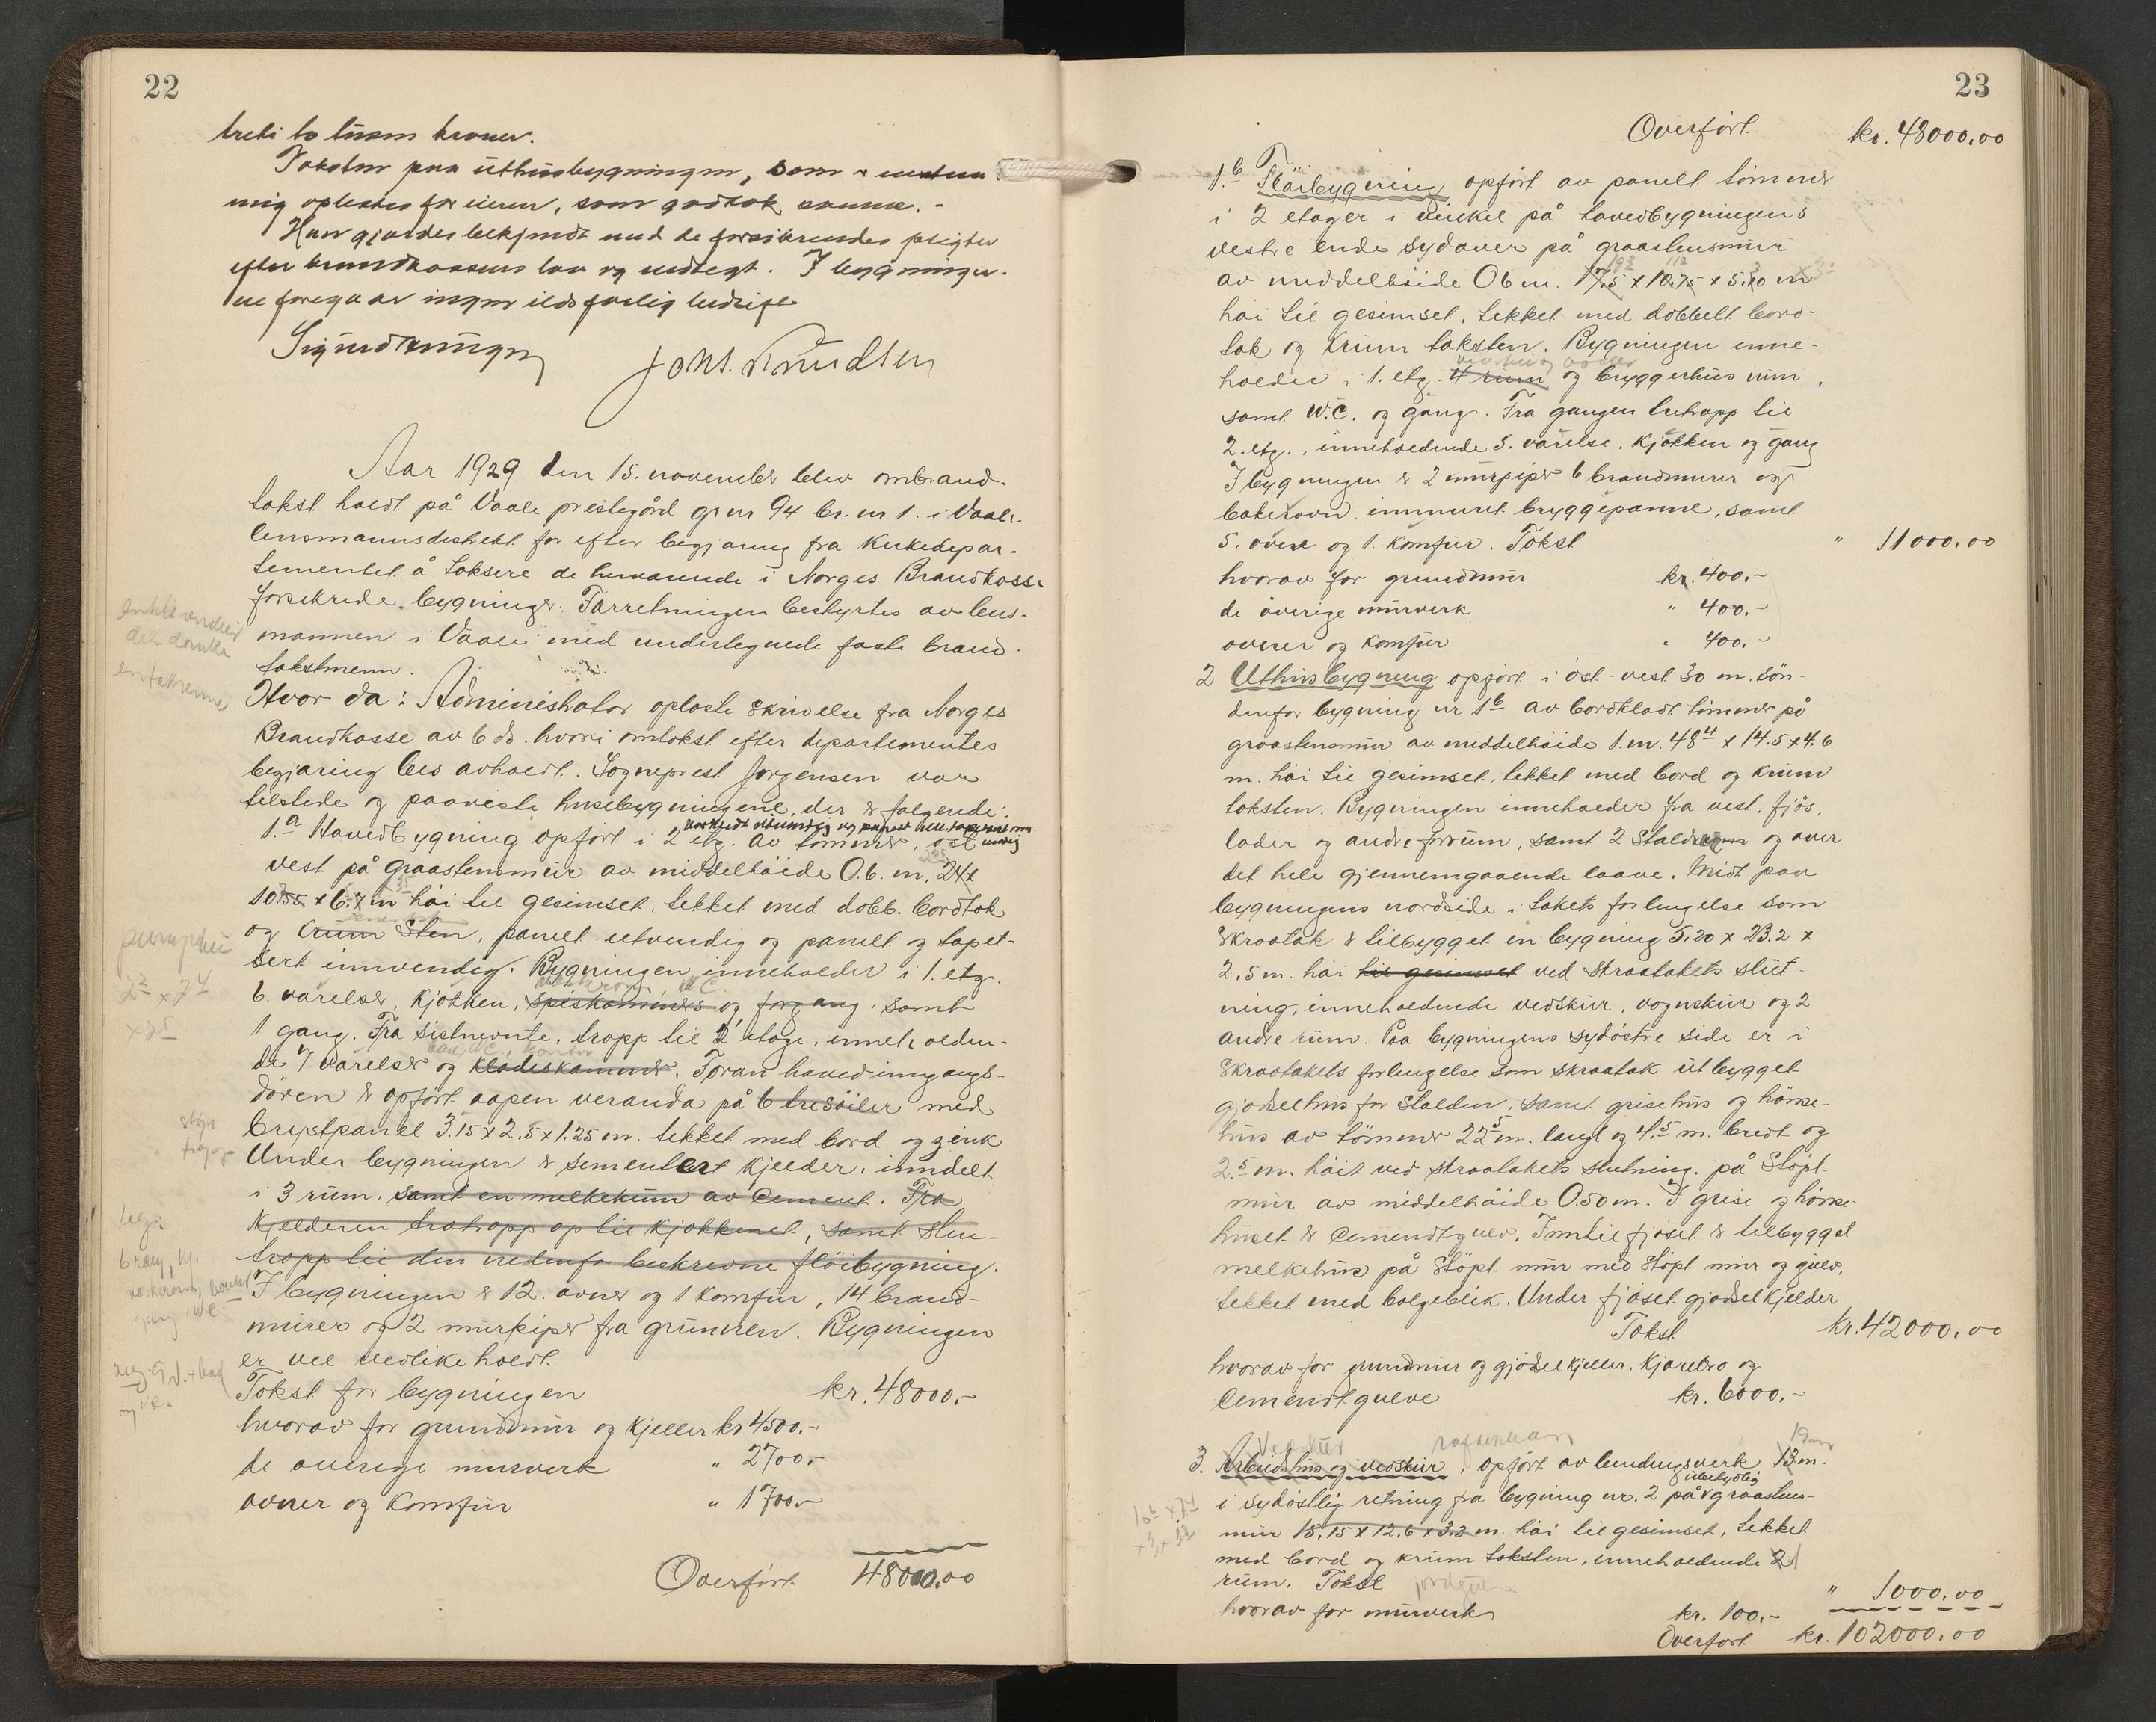 22
treti to tusen kroner.
Taksten paa uthusbygningen, som
mig oplestes for eieren, som godtok samme. -
Han gjordes bekjendt med de forsikrendes pligter
efter brandkassens lov og vedtegt. I bygninger-
ne foregaar ingen ildsfarlig bedrift
Johs. Knudsen
Aar 1929 den 15. november blev ombrand-
takst holdt på Vaale prestegård gr. nr 94 br. nr 1. i Vaale
lensmannsdistrikt for efter begjæring fra Kirkedepar-
tementet å taksere de herværende i Norges Brandkasse
forsikrede bygninger. Forretningen bestyrtes av lens-
mannen i Vaale med undertegnede faste brand-
takstmenn.
Hvor da: Administrator oplæste skrivelse fra Norges
Brandkasse av 6 ds. hvori omtakst efter departementes
begjæring blev avholdt. Sogneprest Jørgensen var
tilstede og paaviste husebygningene, der er følgende:
1.a Hovedbygning opført i 2 etg. av tømmer, øst
vest på graastensmur av middelhøide 0.6. m. 24 x
10.55 x 6.7 m høi til gesimset, tekket med dobb. bordtak
og krum sten, panelt utvendig og panelt og tapet-
sert innvendig. Bygningen inneholder i 1. etg.
6. værelser, kjøkken, spiskammers og forgang, samt
1 gang. Fra sistnevnte, tropp til 2 etage, inneholden-
de 7 værelser og klædeskammer. Foran hovedinngangs-
døren er opført aapen veranda på 6 tresøiler med
brystpanel 3.15 x 2.5 x 1.25 m. tekket med bord og zink
Under bygningen er sementert kjelder, inndelt
i 3 rum, samt en melkekum av cement. Fra
Kjelderen tratropp op til kjøkkenet, samt sten-
tropp til den nedenfor beskrevne fløibygning.
I bygningen er 12. ovner og 1 komfur, 14 brand-
murer og 2 murpiper fra grunnen. Bygningen
er vel vedlikeholdt.
Takst for bygningen kr. 48000.-
hvorav for grundmur og kjeller kr 4500.-
de øverige murverk " 2700.-
ovner og komfur " 1700.-
Overført 48000.00
23
Overført kr. 48000.00
1.b Fløibygning opført av panelt tømmer
i 2 etager i vinkel på hovedbygningens
vestre ende sydover på graastensmur
av middelhøide 0.6 m. 17.5 x 10.75 x 5.10 m
høi til gesimset, tekket med dobbelt bord-
tak og krum taksten. Bygningen inne-
holder i 1. etg. 4 rum og bryggerhus rum,
samt W.C. og gang. Fra gangen tretropp til
2. etg., inneholdende 5. værelse, kjøkken og gang
I bygningen er 2 murpiper 6 brandmurer og
bakerovn, inmuret bryggepanne, samt
5. ovner og 1. komfur. Takst " 11000.00
hvorav for grundmur kr. 400.-
de øverige murverk " 400.-
ovner og komfur " 400.-
2 Uthusbygning opført i øst-vest 30 m. søn-
denfor bygning nr 1b av bordklædt tømmer på
graastensmur av middelhøide 1. m. 48 4 x 14.5 x 4.6
m. høi til gesimset, tekket med bord og krum
taksten. Bygningen inneholder fra vest, fjøs,
lader og andre forrum, samt 2 Stalder og over
det hele gjennemgaaende laave. Midt paa
bygningens nordside i takets forlengelse som
skraatak er tilbygget en bygning 5.20 x 23.2 x
2.5 m. høi til gesimset ved skraatakets slut-
ning, inneholdende vedskur, vognskur og 2
andre rum. Paa bygningens sydøstre side er i
skraatakets forlengelse som skraatak utbygget
gjødselhus for stalden, samt grisehus og hønse-
hus av tømmer 22 5 m. langt og 4.5 m. bredt og
2.5 m. høit ved skraatakets slutning, på støpt
mur av middelhøide 0.50 m. I grise og hønse-
huset er cementgulv. Inntil fjøset er tilbygget
melkehus på støpt mur med støpt mur og gulv,
tekket med bølgeblik. Under fjøset gjødselkjelder
Takst kr. 42000.00
hvorav for grundmur og gjødselkjeller, kjørebro og
Cementgulve kr. 6000.-
3. Arbeidshus og vedskur, opført av bindingsverk 13 m.
i sydøstlig retning fra bygning nr. 2 på graastens-
mur 15.15 x 12.6 x 3.3 m. høi til gesimset, tekket
med bord og krum taksten, inneholdende 2
rum. Takst " 1000.00
hvorav for murverk kr. 100.-
Overført kr. 102000.00